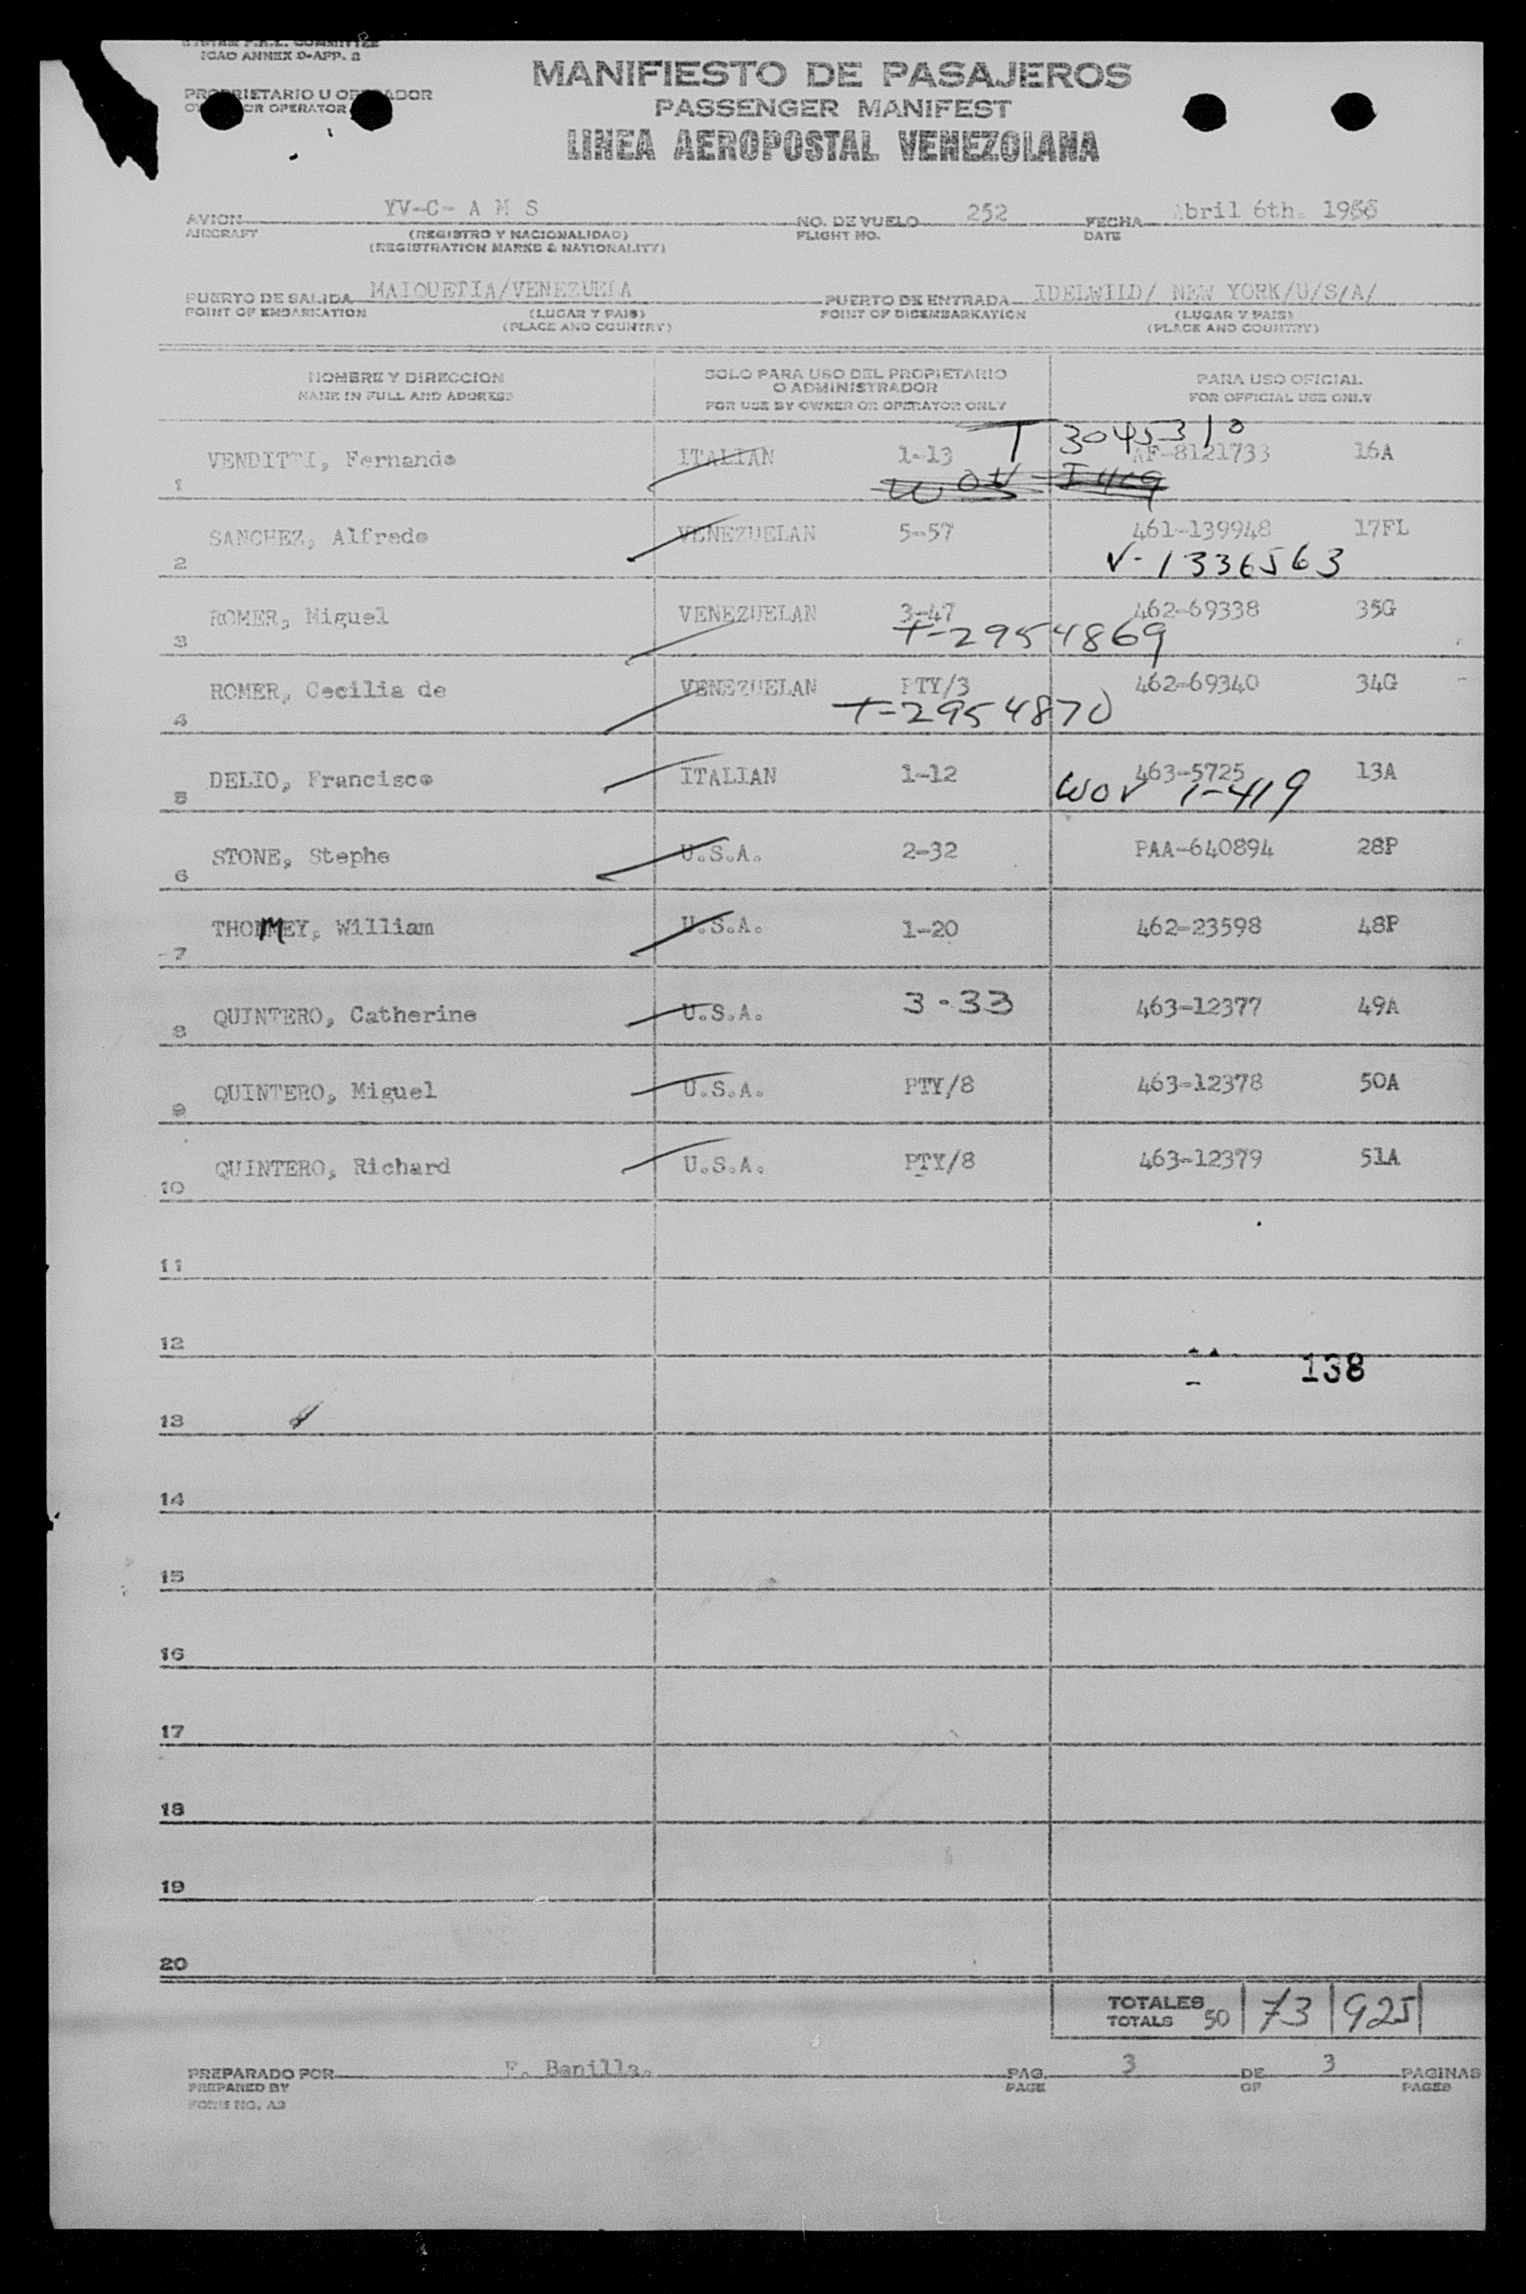 ICAO ANNEX 9-APP. 3
PROPRIETARIO U OPERADOR
OR OPERATOR
MANIFIESTO DE PASAJEROS
PASSENGER MANIFEST
LINEA AEROPOSTAL VENEZOLANA
AVION YV-C- A M S NO. DE VUELO 252 FECHA Abril 6th. 1956
AIRCRAFT (REGISTRO Y NACIONALIDAD) FLIGHT NO. DATE
(REGISTRATION MARKS & NATIONALITY)
PUERTO DE SALIDA MAIQUETIA/VENEZUELA PUERTO DE ENTRADA IDELWILD/ NEW YORK/U/S/A/
POINT OF EMBARKATION (LUGAR Y PAIS) POINT OF DISEMBARKATION (LUGAR Y PAIS)
(PLACE AND COUNTRY) (PLACE AND COUNTRY)
NOMBRE Y DIRECCION SOLO PARA USO DEL PROPIETARIO O ADMINISTRADOR PARA USO OFICIAL
NAME IN FULL AND ADDRESS FOR USE BY OWNER OR OPERATOR ONLY FOR OFFICIAL USE ONLY
T 3045310
1 VENDITTI, Fernando ITALIAN 1-13 AF-8121733 16A
2 SANCHEZ, Alfredo VENEZUELAN 5-57 461-139948 17FL
V-1336563
3 ROMER, Miguel VENEZUELAN 3-47 462-69338 35G
T-2954869
4 ROMER, Cecilia de VENEZUELAN PTY/3 462-69340 34G
T-2954870
5 DELIO, Francisco ITALIAN 1-12 463-5725 13A
WOV 1-419
6 STONE, Stephe U.S.A. 2-32 PAA-640894 28P
7 THOMMEY, William U.S.A. 1-20 462-23598 48P
8 QUINTERO, Catherine U.S.A. 3-33 463-12377 49A
9 QUINTERO, Miguel U.S.A. PTY/8 463-12378 50A
10 QUINTERO, Richard U.S.A. PTY/8 463-12379 51A
11
12
138
13
14
15
16
17
18
19
20
TOTALES
TOTALS 50 73 925
PREPARADO POR F. Banilla. PAG. 3 DE 3 PAGINAS
PREPARED BY PAGE OF PAGES
FORM NO. A3